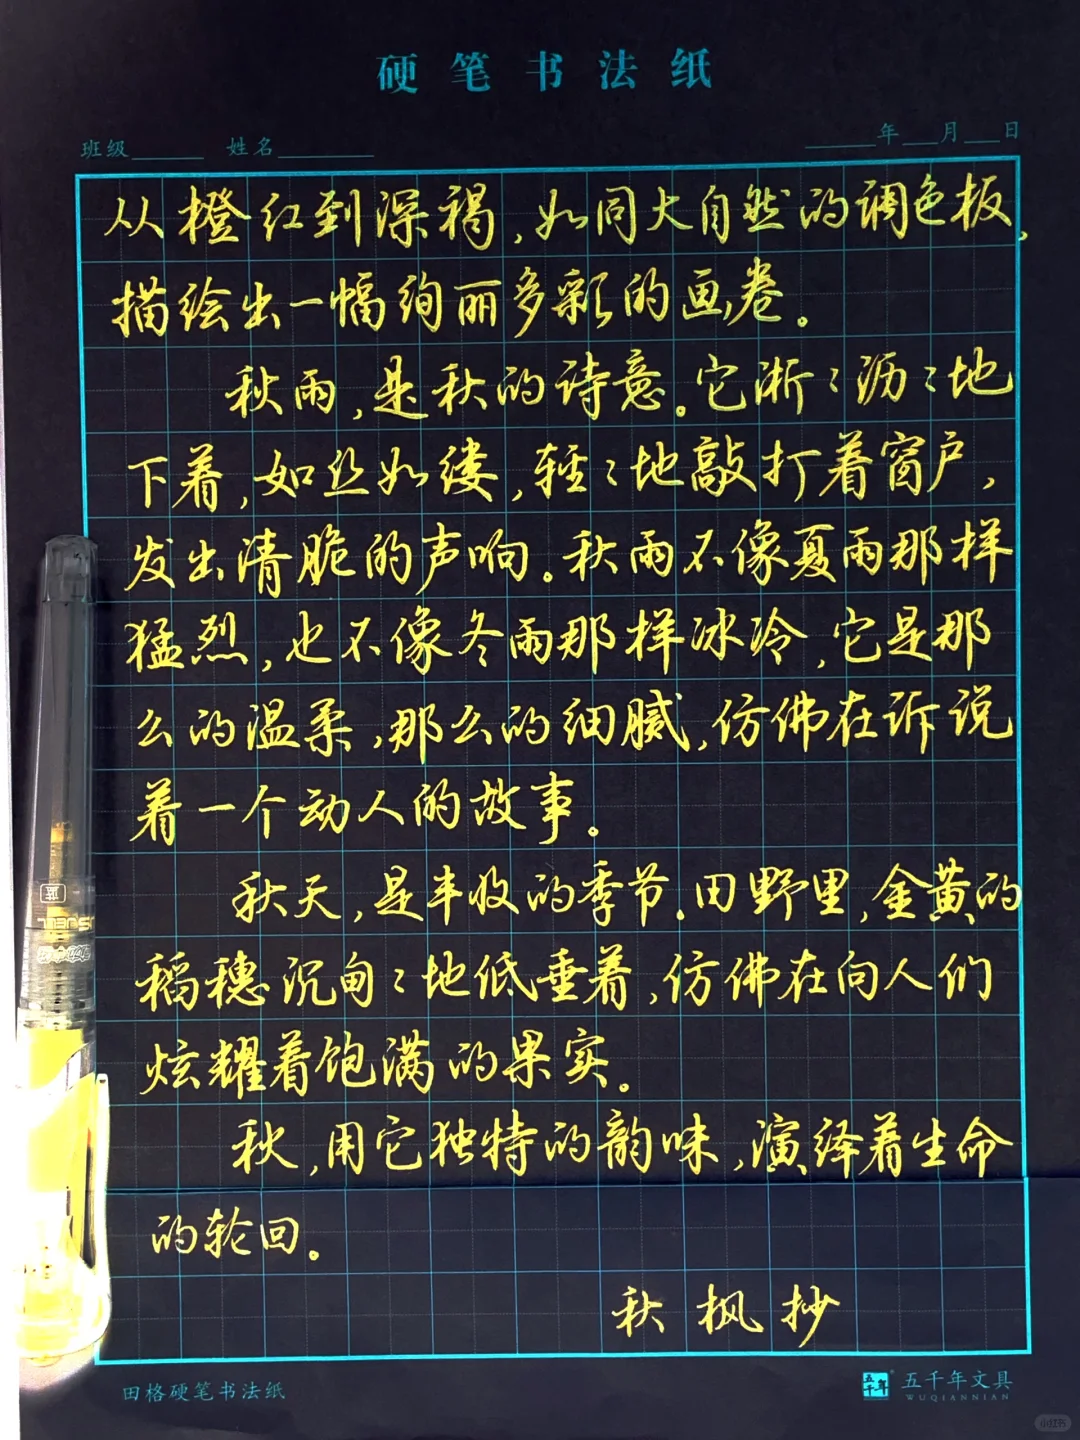 硬笔书法纸
班级 姓名 年 月 日
从橙红到深褐,如同大自然的调色板,
描绘出一幅绚丽多彩的画卷。
秋雨,是秋的诗意。它淅〻沥〻地
下着,如丝如缕,轻〻地敲打着窗户,
发出清脆的声响。秋雨不像夏雨那样
猛烈,也不像冬雨那样冰冷,它是那
么的温柔,那么的细腻,仿佛在诉说
着一个动人的故事。
秋天,是丰收的季节。田野里,金黄的
稻穗沉甸〻地低垂着,仿佛在向人们
炫耀着饱满的果实。
秋,用它独特的韵味,演绎着生命
的轮回。
秋枫抄
田格硬笔书法纸
五千年 五千年文具
WUQIANNIAN
蓝
小红书